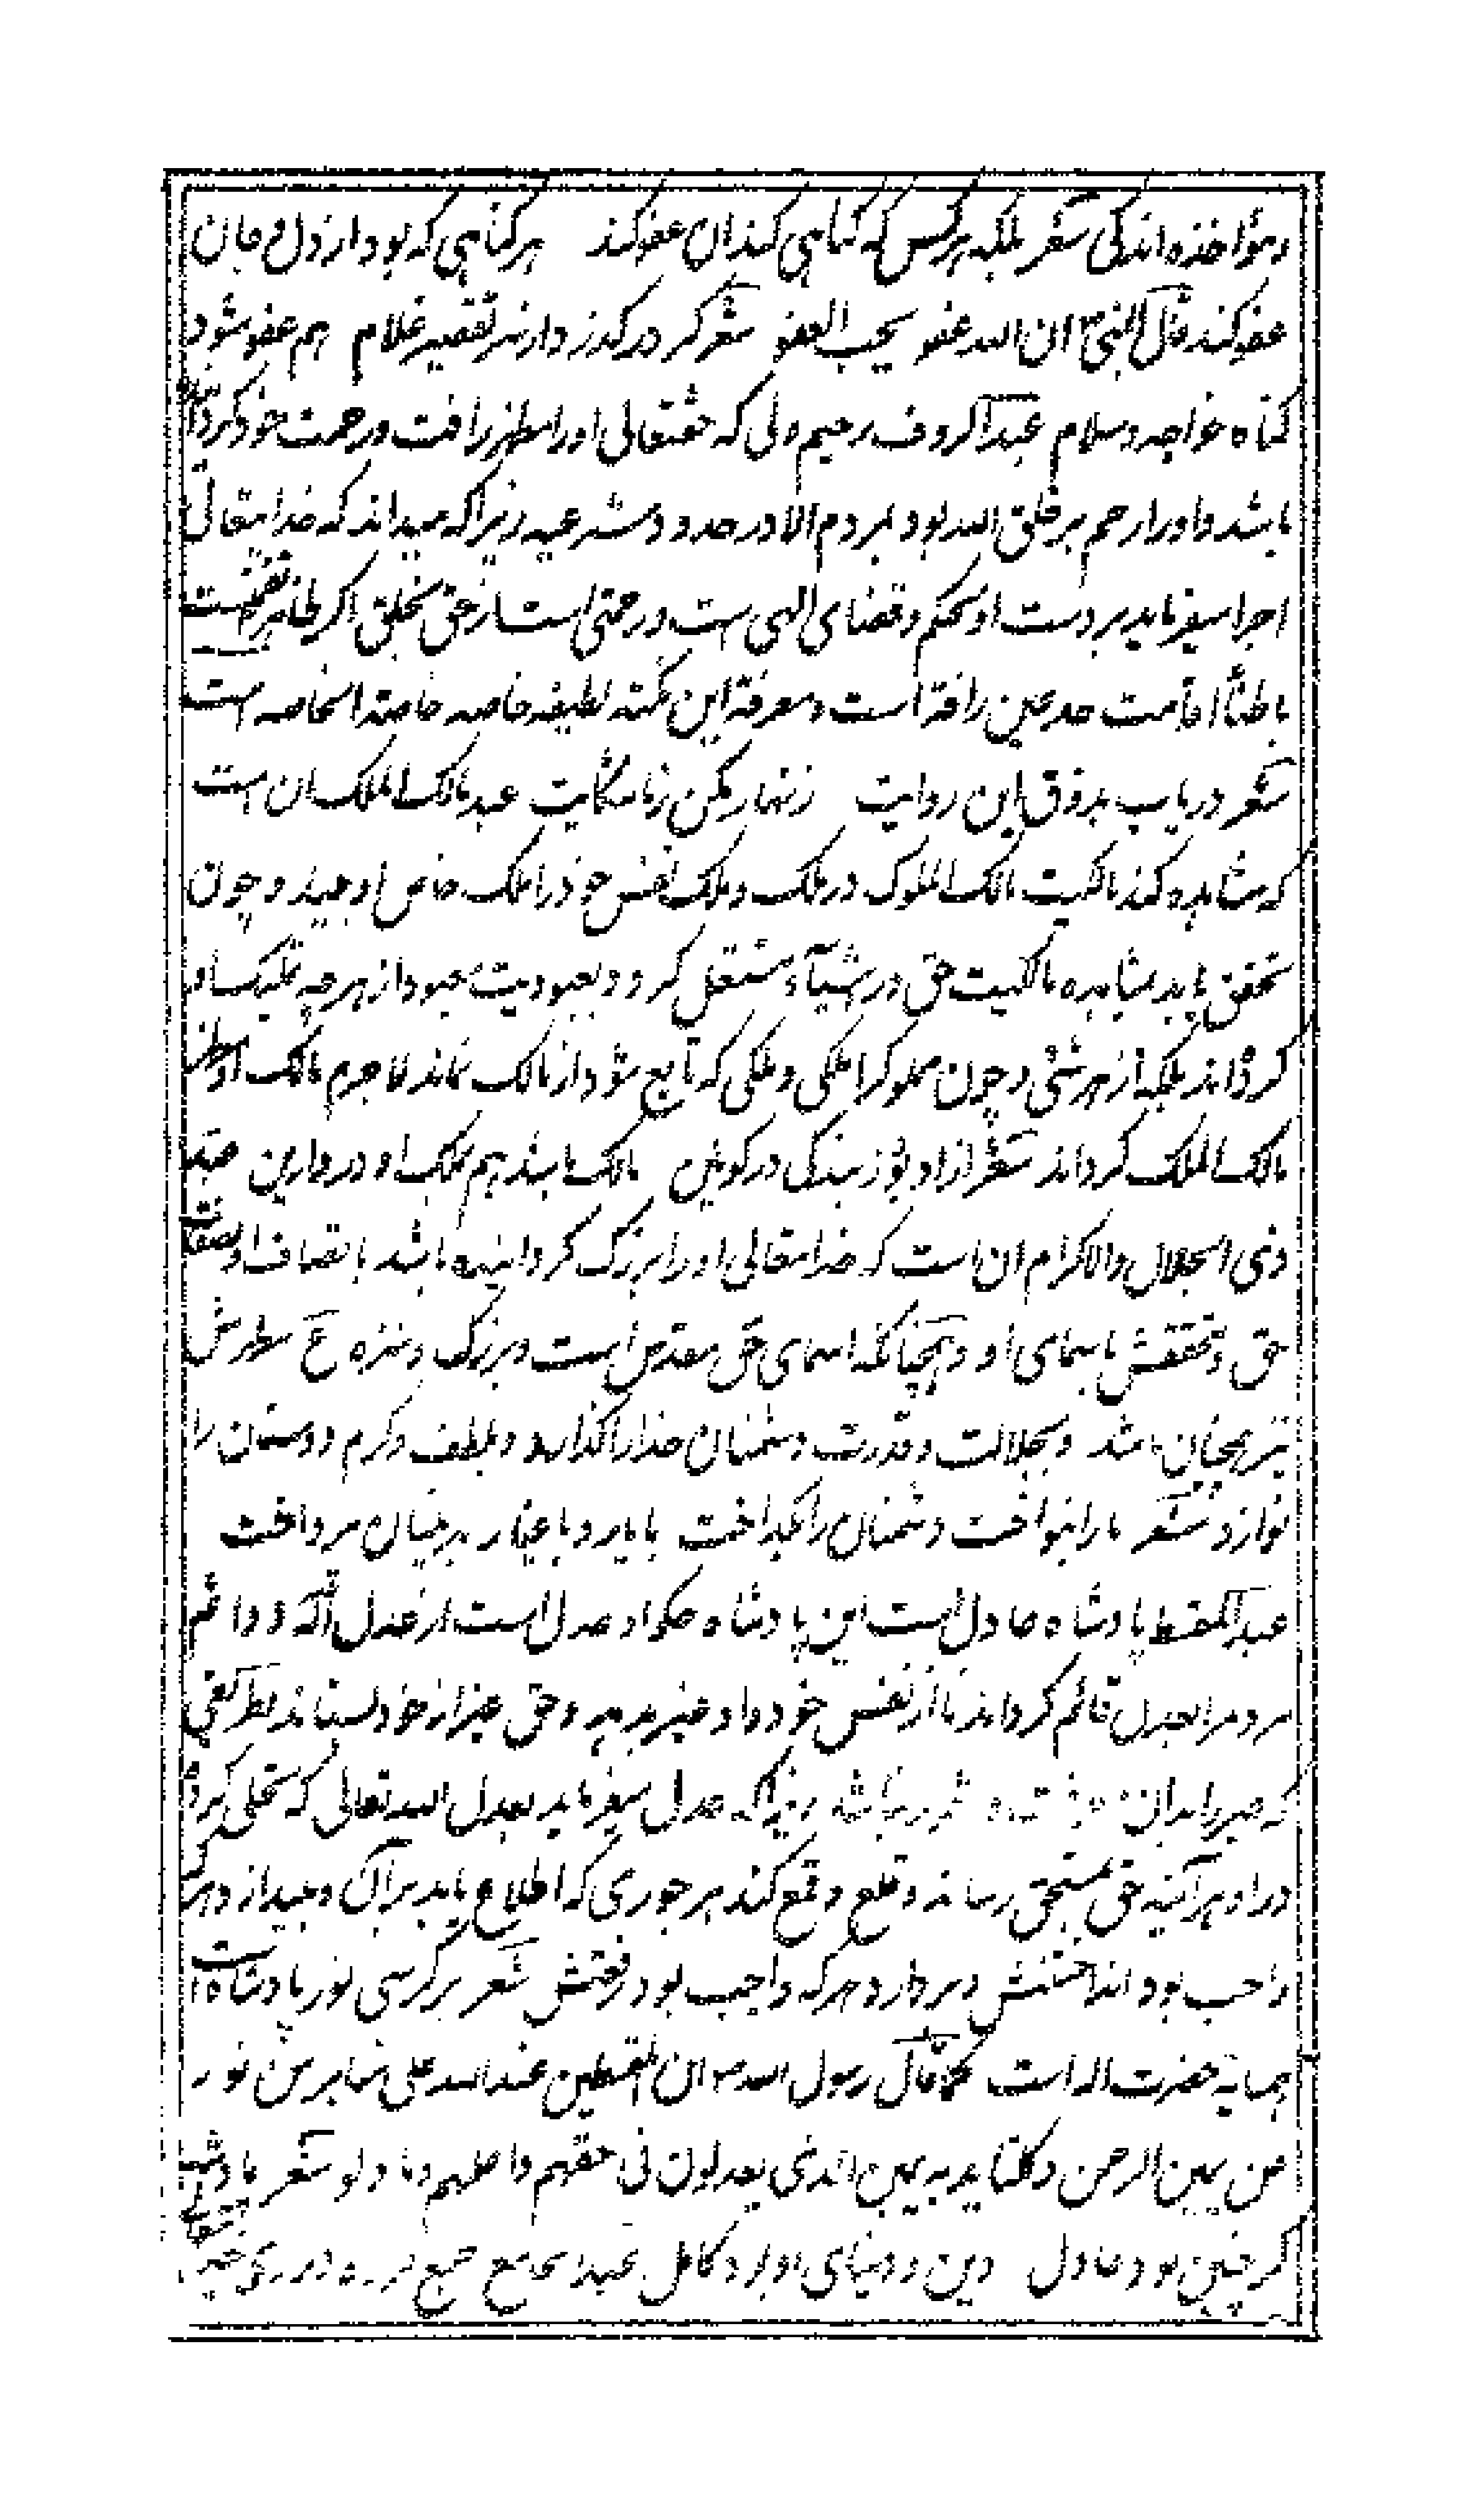 ومؤاخذه اندکی شعر بلکه هرکس که کناهی کند ان عفو کند هر کناهی که بود از دل و جان
عفو کند قال النبی ان الله عفو یحب العفو شعر کر در کذرد از سر تقصیر غلام هم عفو شود
کناه خواجه وسلام عبدالروف رحیم دلی که حقتعالی اورا مظهر رافت ورحمت خود کرد
باشد واورا رحم بر خلق الله بود بمردم الا در حدود شرعیه زیرا که میداند که خدایتعالی
اجرا میفرماید بر دست او بحکم وقضای الهی است ورحمتی است از حق بخلق اکر بظاهر نقمتست
باطنا اقامت حد عین رافة است ومعرفة این نکته لطیفه خاصه خاصة الخاصه است
شعر دریاب بذوق این روایت زنهار مکن زما شکایت عبد مالک الملک ان است
که مشاهده کند مالکیت مالک الملوک در ملک وملک نفس خود را ملک خاص او بیند و چون
تحقق یابد بمشاهده مالکیت حق در اشیآء مشتغل کردد بعبودیت معبود از هرچه تملیکش او
کرداند بلکه از هر شئی و چون مملوکرا ملکی وملکی که تابع شود از مالک نماند لا جرم مالک اورا
مالک الملک کرداند شعر ازاد بود ز بندکی در کونین مالک باشد بهم بملک او در دارین عبد
ذی الجلال والاکرام ان است که خدایتعالی اورا بزرک کردانیده باشد باتصاف او بصفات
حق وتحققش باسمای او وهمچنانکه اسمای حق مقدس است وبزرک ومنزه مظهرش
نیز همچنان باشد وبجلالت وقدرت دشمنان خدارا کذارد وبلطف وکرم دوستان را
نوازد شعر مارا بنواخت دشمنان را بکداخت با یار و با اغیار بدینسان پرداخت
عبدالمقسط پادشاه عادل است این پادشاه حکم او عدل است از عدل اله او دائم
مردمرا بعدل قائم کرداند تا از نفس خود داد غیر بدهد وحق غیر از خود بستاند بطریقی
که غیر را بدان زیرا که عدل میفرماید بعدل الله تعالی که متجلی کردد
در او هر آینه حق بمستحق رساند وقلع وقمع کند هر جوری که اطلاع یابد بر آن وبیندازد هر که
واجب بود انداختنش وبردارد هرکه واجب بود رفعتش شعر بر کرسی نور پادشاه است
همسایه حضرت اله است کما قال رسول الله ص ان المقسطین عند الله علی منابر من نور
عن یمین الرحمن وکلتا یدیه یمین الذی یعدلون فی حکمهم واهلیهم وما ولو شعر پادشه
کر چنین بود عادل دین ودنیای او بود کامل عبدالجامع جمع